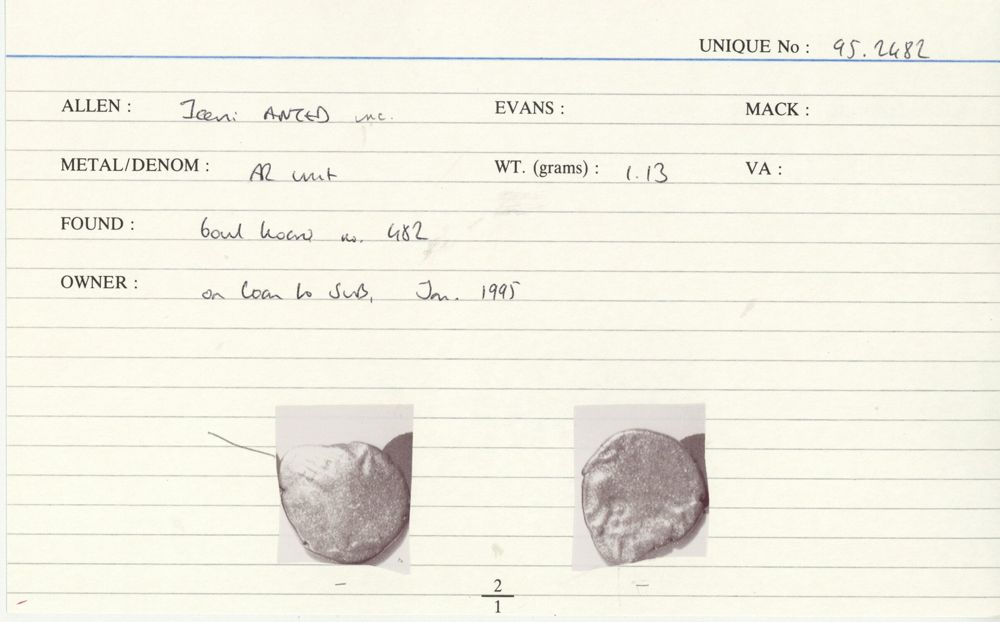 UNIQUE No : 95.2482
ALLEN : Iceni ANTED unc. EVANS : MACK :
METAL/DENOM : AR unit WT. (grams) : 1.13 VA :
FOUND : bowl hoard no. 482
OWNER : on loan to Jan. 1995
– 2 –
1